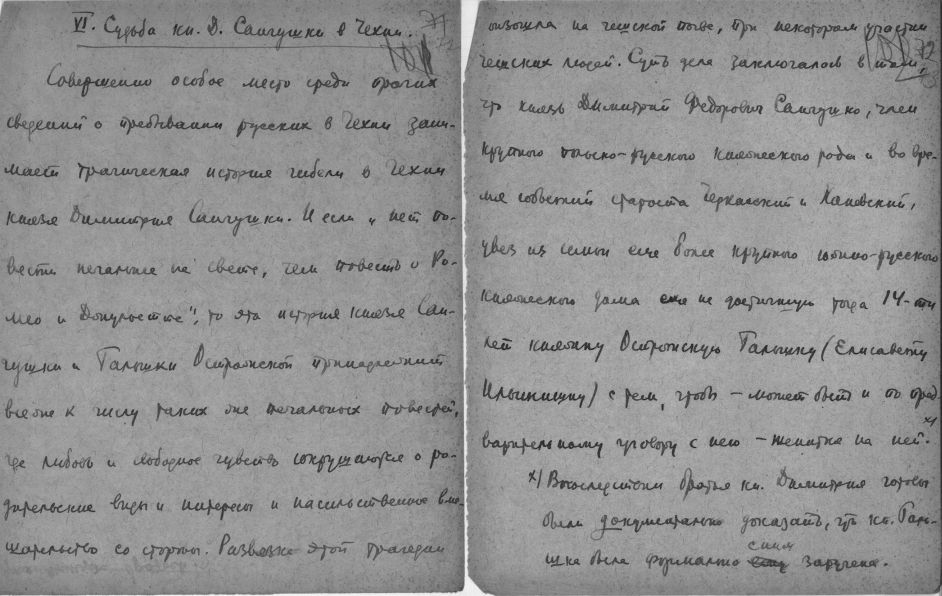 VI. Судьба кн. Д. Сангушки в Чехии.
71
72
Совершенно особое место среди других
сведений о пребывании русских в Чехии зани-
мает трагическая история гибели в Чехии
князя Димитрия Сангушки. И если „нет по-
вести печальнее на свете, чем повесть о Ро-
мео и Джульетте", то эта история князя Сан-
гушки и Гальшки Острожской принадлежит
все же к числу таких же печальных повестей,
где любовь и свободное чувство сокрушаются о ро-
дительские виды и интересы и насильственное вме-
шательство со стороны. Развязка этой трагедии
72
оизошла на чешской почве, при некотором участии
чешских людей. Суть дела заключалась в том,
что князь Димитрий Федорович Сангушко, член
крупного польско-русского княжеского рода и во вре-
мя событий староста Черкасский и Каневский,
увез из семьи еще более крупного южно-русского
княжеского дома не достигшую тогда 14-ти
лет княжну Острожскую Гальшку (Елисавету
Ильинишну) с тем, чтобы – может быть и по пред-
варительному уговору с нею – женитьба на ней. x)
x) Впоследствии братья кн. Димитрия готовы
были документально доказать, что кн. Галь-
шка была формально с ним заручена.